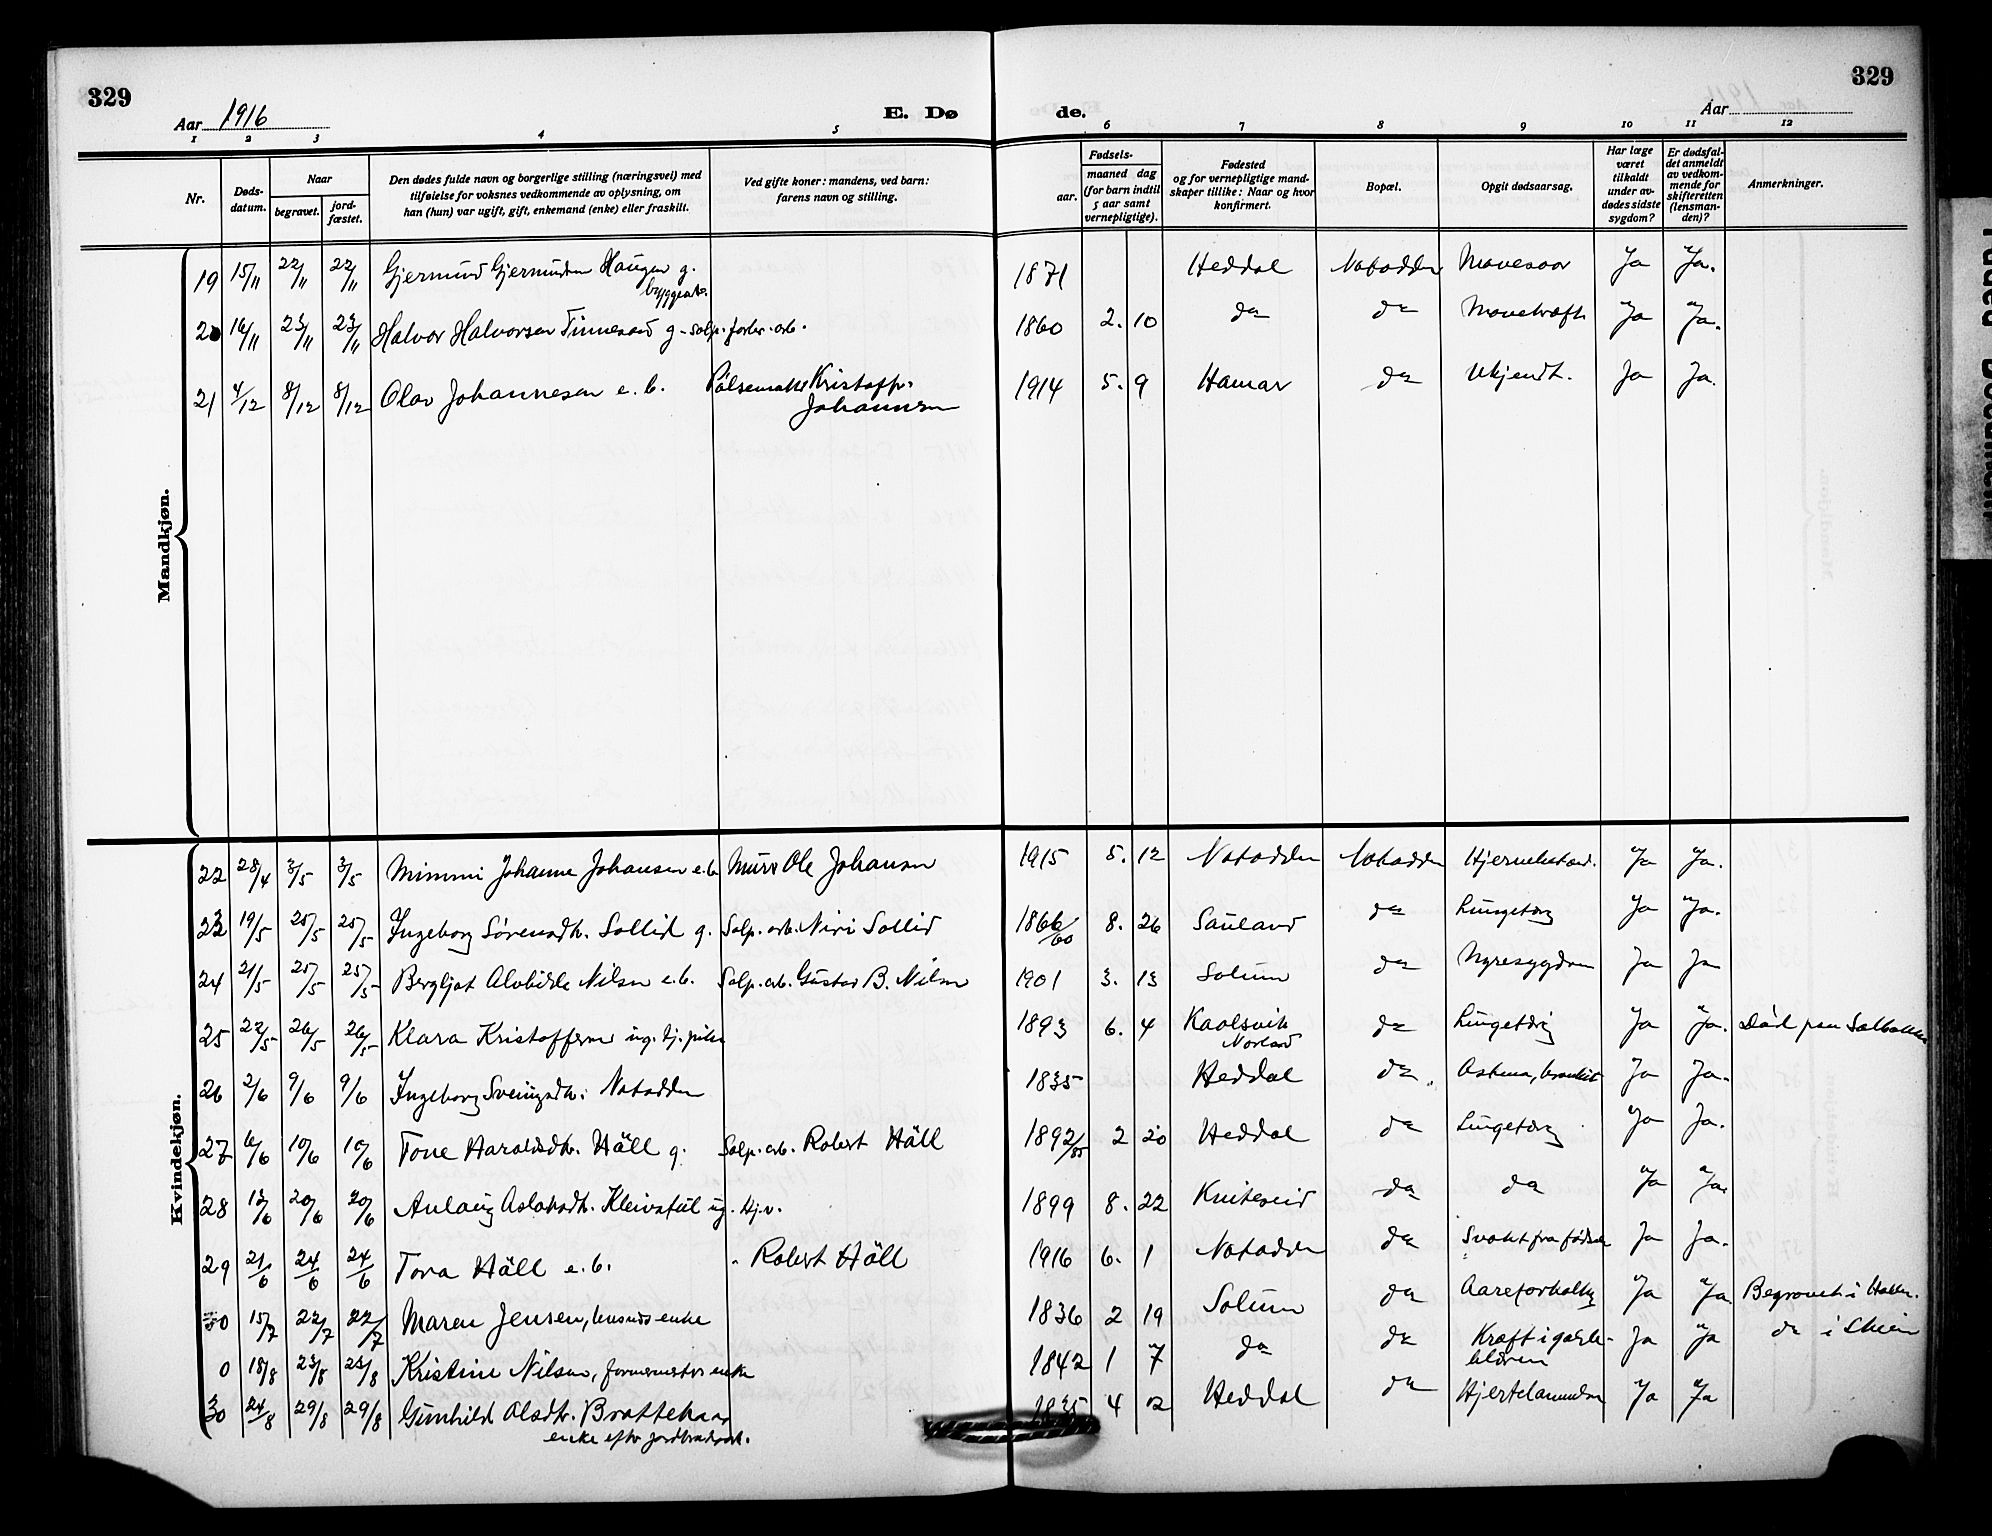 329
329
Aar 1916
E. Dø
de.
Aar
1 2 3 4 5 6 7 8 9 10 11 12
Nr.
Døds-datum.
Naar
begravet.
jord-fæstet.
Den dødes fulde navn og borgerlige stilling (næringsvei) med
tilføielse for voksnes vedkommende av oplysning, om
han (hun) var ugift, gift, enkemand (enke) eller fraskilt.
Ved gifte koner: mandens, ved barn:
farens navn og stilling.
Fødsels-
aar.
maaned dag
(for barn indtil
5 aar samt
vernepligtige).
Fødested
og for vernepligtige mand-
skaper tillike: Naar og hvor
konfirmert.
Bopæl.
Opgit dødsaarsag.
Har læge
været
tilkaldt
under av-
dødes sidste
sygdom?
Er dødsfal-
det anmeldt
av vedkom-
mende for
skifteretten
(lensman-
den)?
Anmerkninger.
Mandkjøn.
19 15/11 22/11 22/11 Gjermund Gjermundsen Haugen g. 1871 Heddal Notodden Mavesaar Ja Ja.
20 16/11 23/11 23/11 Halvor Halvorsen Tinnesand g. salp. forbr. arb. 1860 2. 10 da da Mavekræft Ja Ja.
21 4/12 8/12 8/12 Olav Johannesen e. b. Pølsemaker Kristoffr. 1914 5. 9 Hamar da Ukjendt. Ja Ja.
Johannesen
Kvindekjøn.
22 28/4 3/5 3/5 Mimmi Johanne Johansen e.b. Murer Ole Johansen 1915 5. 12 Notodden Notodden Ja Ja.
23 19/5 25/5 25/5 Ingeborg Sørensdtr. Sollid g. Salp. arb. Niri Sollid 1866/60 8. 26 Sauland da Lungetbrg Ja Ja.
24 21/5 25/5 25/5 Bergljot Alvhilde Nilsen e.b. Salp. arb. Gustav B. Nilsen 1901 3. 13 Solum da Nyresygdom Ja Ja
25 22/5 26/5 26/5 Klara Kristoffersen ug. tj. pike 1893 6. 4 da Lungetbrg Ja Ja. Død paa
Norland
26 2/6 9/6 9/6 Ingeborg Sveinsdtr. Notodden 1835 Heddal da Astma, bronkit Ja Ja.
27 6/6 10/6 10/6 Tone Haraldsdtr. Häll g. Salp. arb. Robert Häll 1892/85 2 20 Heddal da Lungetbrg Ja Ja.
28 13/6 20/6 20/6 Aslaug Aslaksdtr. Kleivstul ug. Hj.v. 1899 8. 22 Kviteseid da da Ja Ja
29 21/6 24/6 24/6 Tora Häll e. b. " Robert Häll 1916 6. 1 Notodden da Svakt fra fødsel Ja Ja.
30 15/7 22/7 22/7 Maren Jensen, lensmds enke 1836 2 19 Solum da Aareforkalkg Ja Ja Begravet i
0 18/8 23/8 23/8 Kristine Nilsen, formermester enke 1842 1 7 da da Kræft i galde- Ja Ja da i Skien
blæren
30 24/8 29/8 29/8 Gunhild Olsdtr. Brattekaas 1835 4 12 Heddal da Hjertelammelse Ja Ja
enke efter